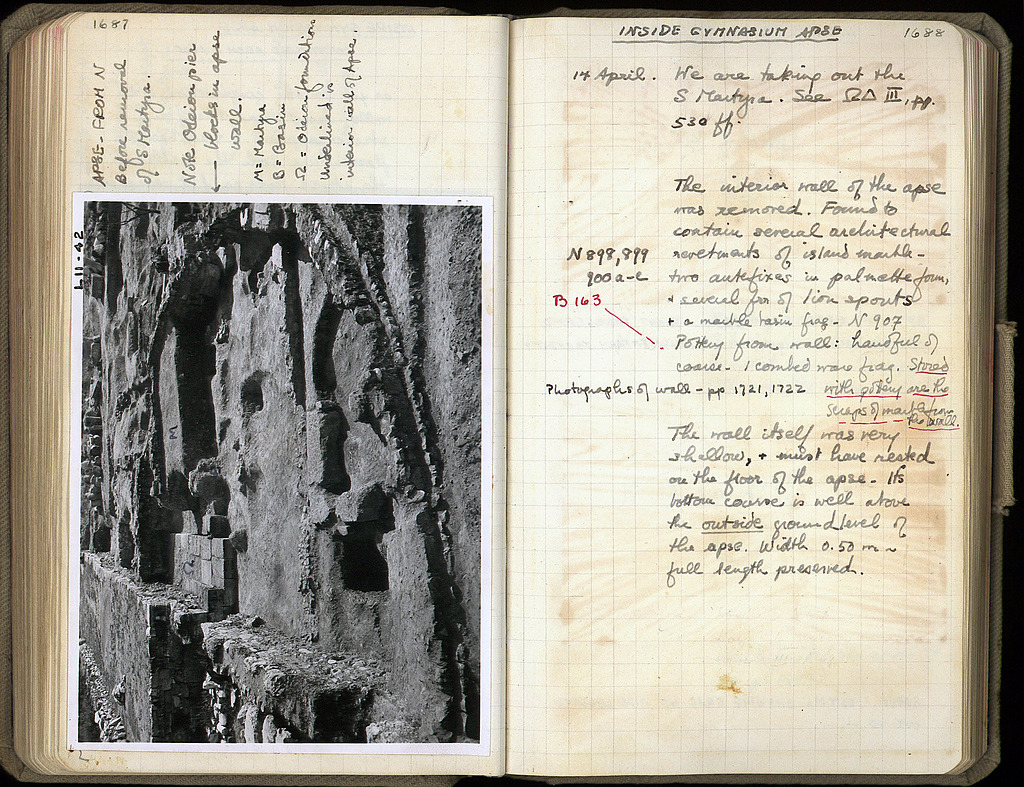 1687
APSE - FROM N
Before removal
of S Martyra.
Note Odeion pier
← blocks in apse
wall.
M = Martyra
B = Basin
Ω = Odeion foundation
Underlined is
interior wall of Apse.
L11-42
M
INSIDE GYMNASIUM APSE
1688
14 April. We are taking out the
S Martyra. See ΩΔ III, pp.
530 ff.
The interior wall of the apse
was removed. Found to
contain several architectural
revetments of island marble -
N 898, 899
900 a-e
two antefixes in palmette form,
+ several frr of lion spouts
+ a marble basin frag - N 907
B 163
Pottery from wall: handful of
coarse - 1 combed ware frag. Stored
with pottery are the
scraps of marble from
the wall.
Photographs of wall - pp 1721, 1722
The wall itself was very
shallow, + must have rested
on the floor of the apse - Its
bottom course is well above
the outside ground level of
the apse. Width 0.50 m -
full length preserved.